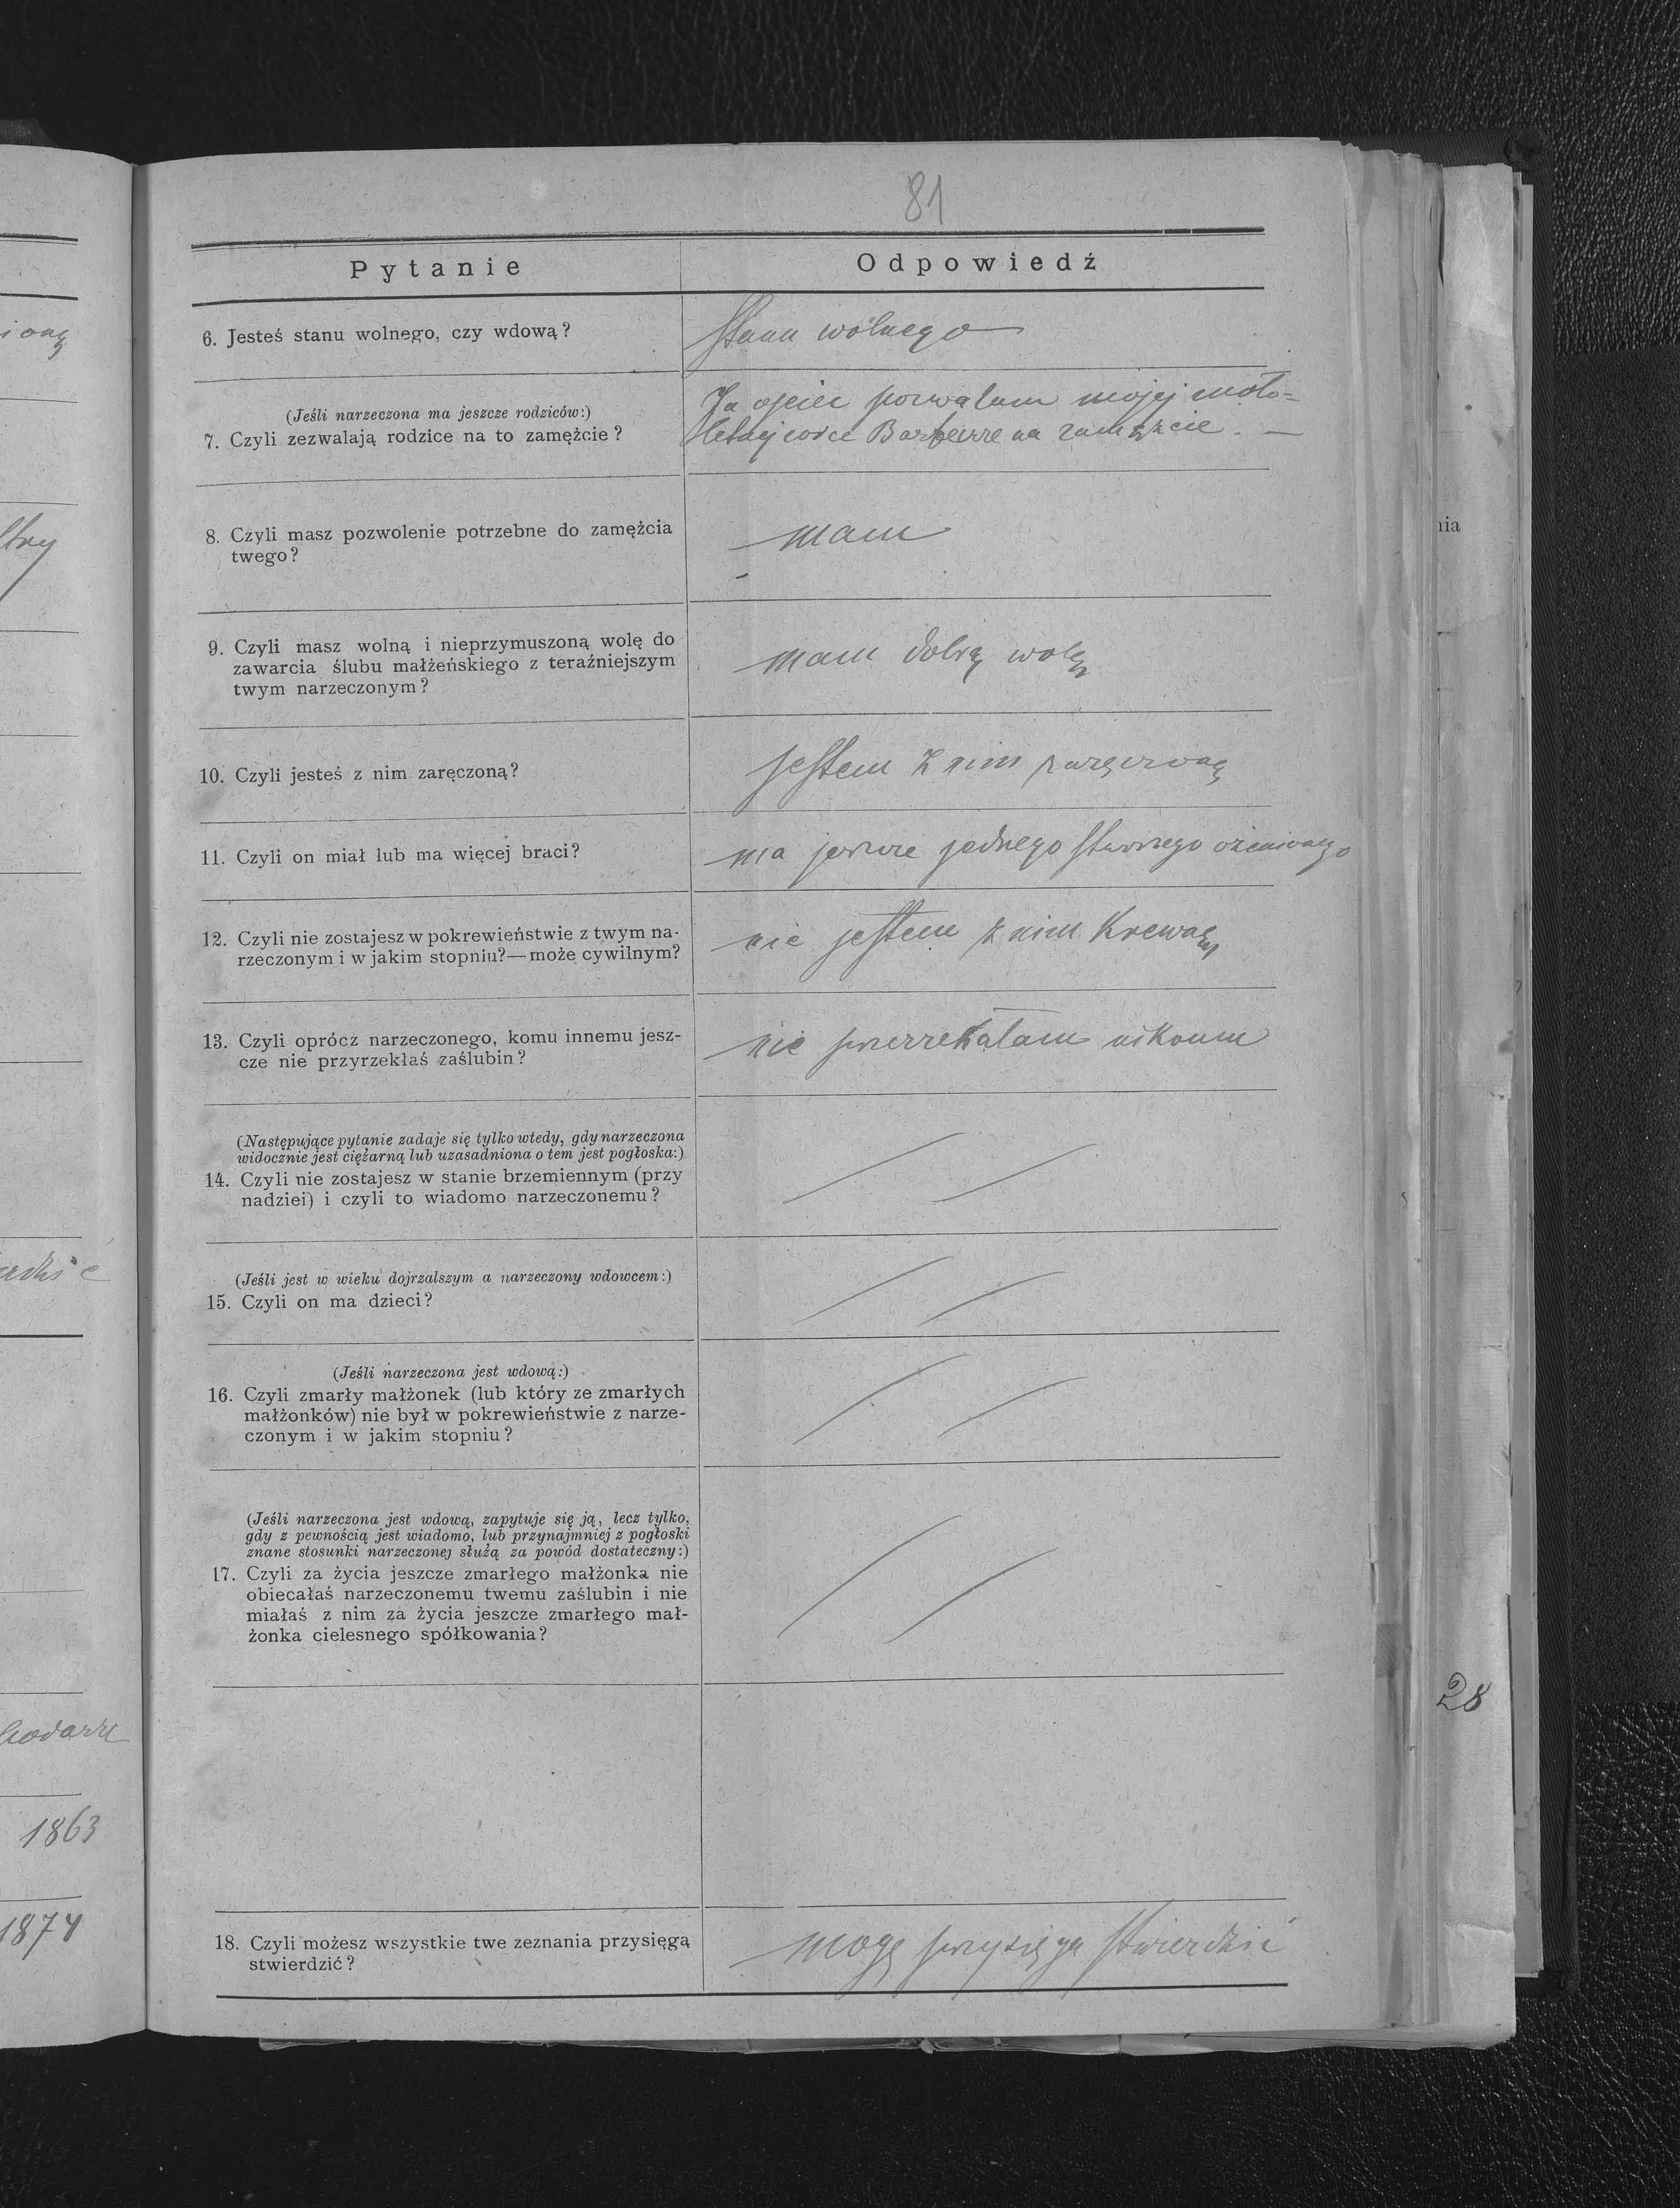 81
Pytanie
Odpowiedź
6. Jesteś stanu wolnego, czy wdową?
Stanu wolnego
(Jeśli narzeczona ma jeszcze rodziców:)
7. Czyli zezwalają rodzice na to zamęźcie?
Ja ojciec pozwalam mojej mało=
letniej córce Barbarze na zamężcie. —
8. Czyli masz pozwolenie potrzebne do zamężcia
twego?
mam
9. Czyli masz wolną i nieprzymuszoną wolę do
zawarcia ślubu małżeńskiego z teraźniejszym
twym narzeczonym?
mam dobrą wolę
10. Czyli jesteś z nim zaręczoną?
jestem z nim zaręczoną
11. Czyli on miał lub ma więcej braci?
ma jeszcze jednego starszego ożenionego
12. Czyli nie zostajesz w pokrewieństwie z twym na-
rzeczonym i w jakim stopniu?—może cywilnym?
nie jestem z nim krewną
13. Czyli oprócz narzeczonego, komu innemu jesz-
cze nie przyrzekłaś zaślubin?
nie przerzekałam nikomu
(Następujące pytanie zadaje się tylko wtedy, gdy narzeczona
widocznie jest ciężarną lub uzasadniona o tem jest pogłoska:)
14. Czyli nie zostajesz w stanie brzemiennym (przy
nadziei) i czyli to wiadomo narzeczonemu?
(Jeśli jest w wieku dojrzalszym a narzeczony wdowcem:)
15. Czyli on ma dzieci?
(Jeśli narzeczona jest wdową:)
16. Czyli zmarły małżonek (lub który ze zmarłych
małżonków) nie był w pokrewieństwie z narze-
czonym i w jakim stopniu?
(Jeśli narzeczona jest wdową, zapytuje się ją, lecz tylko,
gdy z pewnością jest wiadomo, lub przynajmniej z pogłoski
znane stosunki narzeczonej służą za powód dostateczny:)
17. Czyli za życia jeszcze zmarłego małżonka nie
obiecałaś narzeczonemu twemu zaślubin i nie
miałaś z nim za życia jeszcze zmarłego mał-
żonka cielesnego spółkowania?
18. Czyli możesz wszystkie twe zeznania przysięgą
stwierdzić?
mogę przysięgą stwierdzić
1863
1874
nia
28